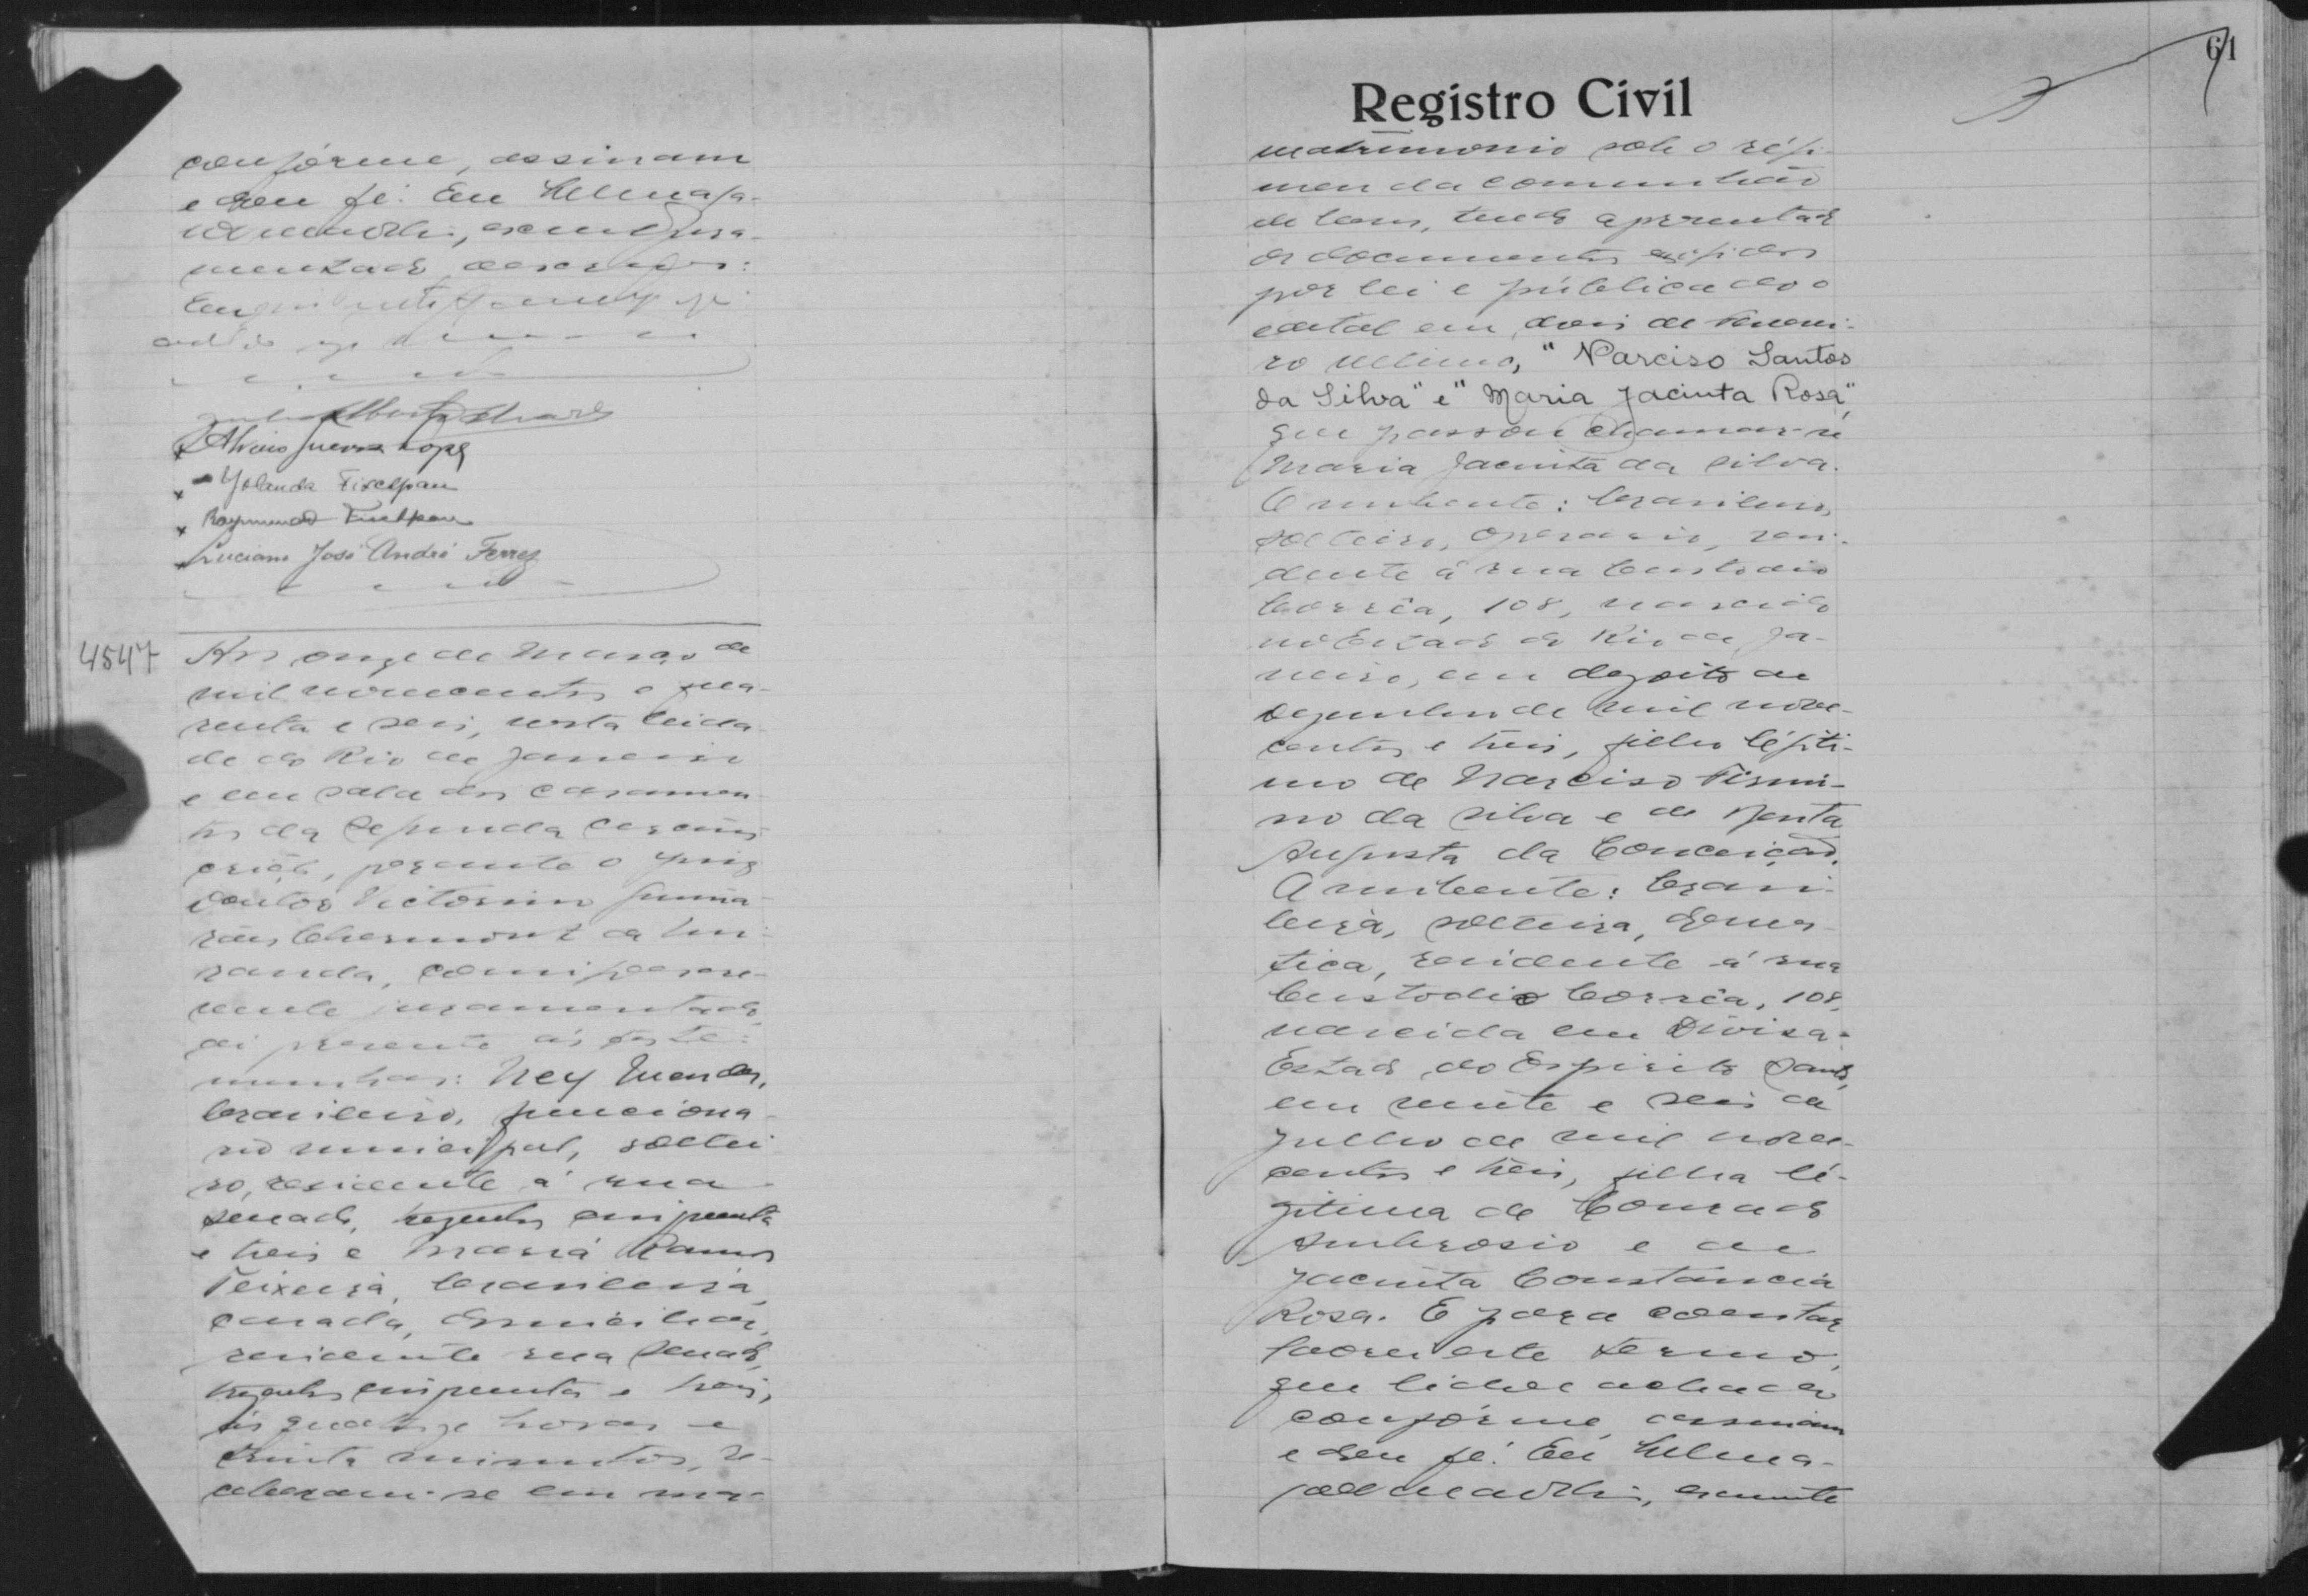 conforme, assinam
e dou fé. Eu
juramentado, escrevi:
Julio Alberto Alvares
Alvino Guerra Lopes
Yolanda Fixelpan
Raymundo Fixelpan
Luciano José André Ferrez
4547
Aos onze de Março de
mil novecentos e qua-
renta e seis, nesta cida
de do Rio de Janeiro
e em sala dos casamen
tos da Segunda Circuns
crição, perante o Juiz
Doutor Victorino
Chermont de Mi-
randa, comigo escre-
vente juramentado,
ai presente ás teste-
munhas: Ney Mendes,
brasileiro, funciona
rio municipal, soltei
ro, residente á rua
Senado, trezentos cincoenta
e treis e Maria Ramos
Teixeira, brasileira,
casada, domiciliar,
residente rua Senado,
trezentos cincoenta e treis,
ás quatorze horas e
trinta minutos, re-
ceberam-se em ma-
Registro Civil
61
matrimonio sob o régi
men da comunhão
de bens, tendo apresentado
os documentos exigidos
por lei e públicado o
edital em dois de Feverei-
ro ultimo, "Narciso Santos
da Silva" e "Maria Jacinta Rosa",
que passou chamar-se
Maria Jacinta da Silva.
O nubente: brasileiro,
solteiro, operario, resi-
dente á rua Custodio
Corrêa, 108, nascido
no Estado do Rio de Ja-
neiro, em dezoito de
Dezembro de mil nove-
centos e treis, filho légiti-
mo de Narciso Firmi-
no da Silva e de Benta
Augusta da Conceição.
A nubente: brasi-
leira, solteira, domes
tica, residente á rua
Custodio Corrêa, 108,
nascida em Divisa-
Estado do Espirito Santo,
em vinte e seis de
Julho de mil nove-
centos e treis, filha lé-
gitima de Conrado
Ambrosio e de
Jacinta Constancia
Rosa. E para constar
lavrei este termo,
que lido e achado
conforme, assinam
e dou fé. Eu
escrevente